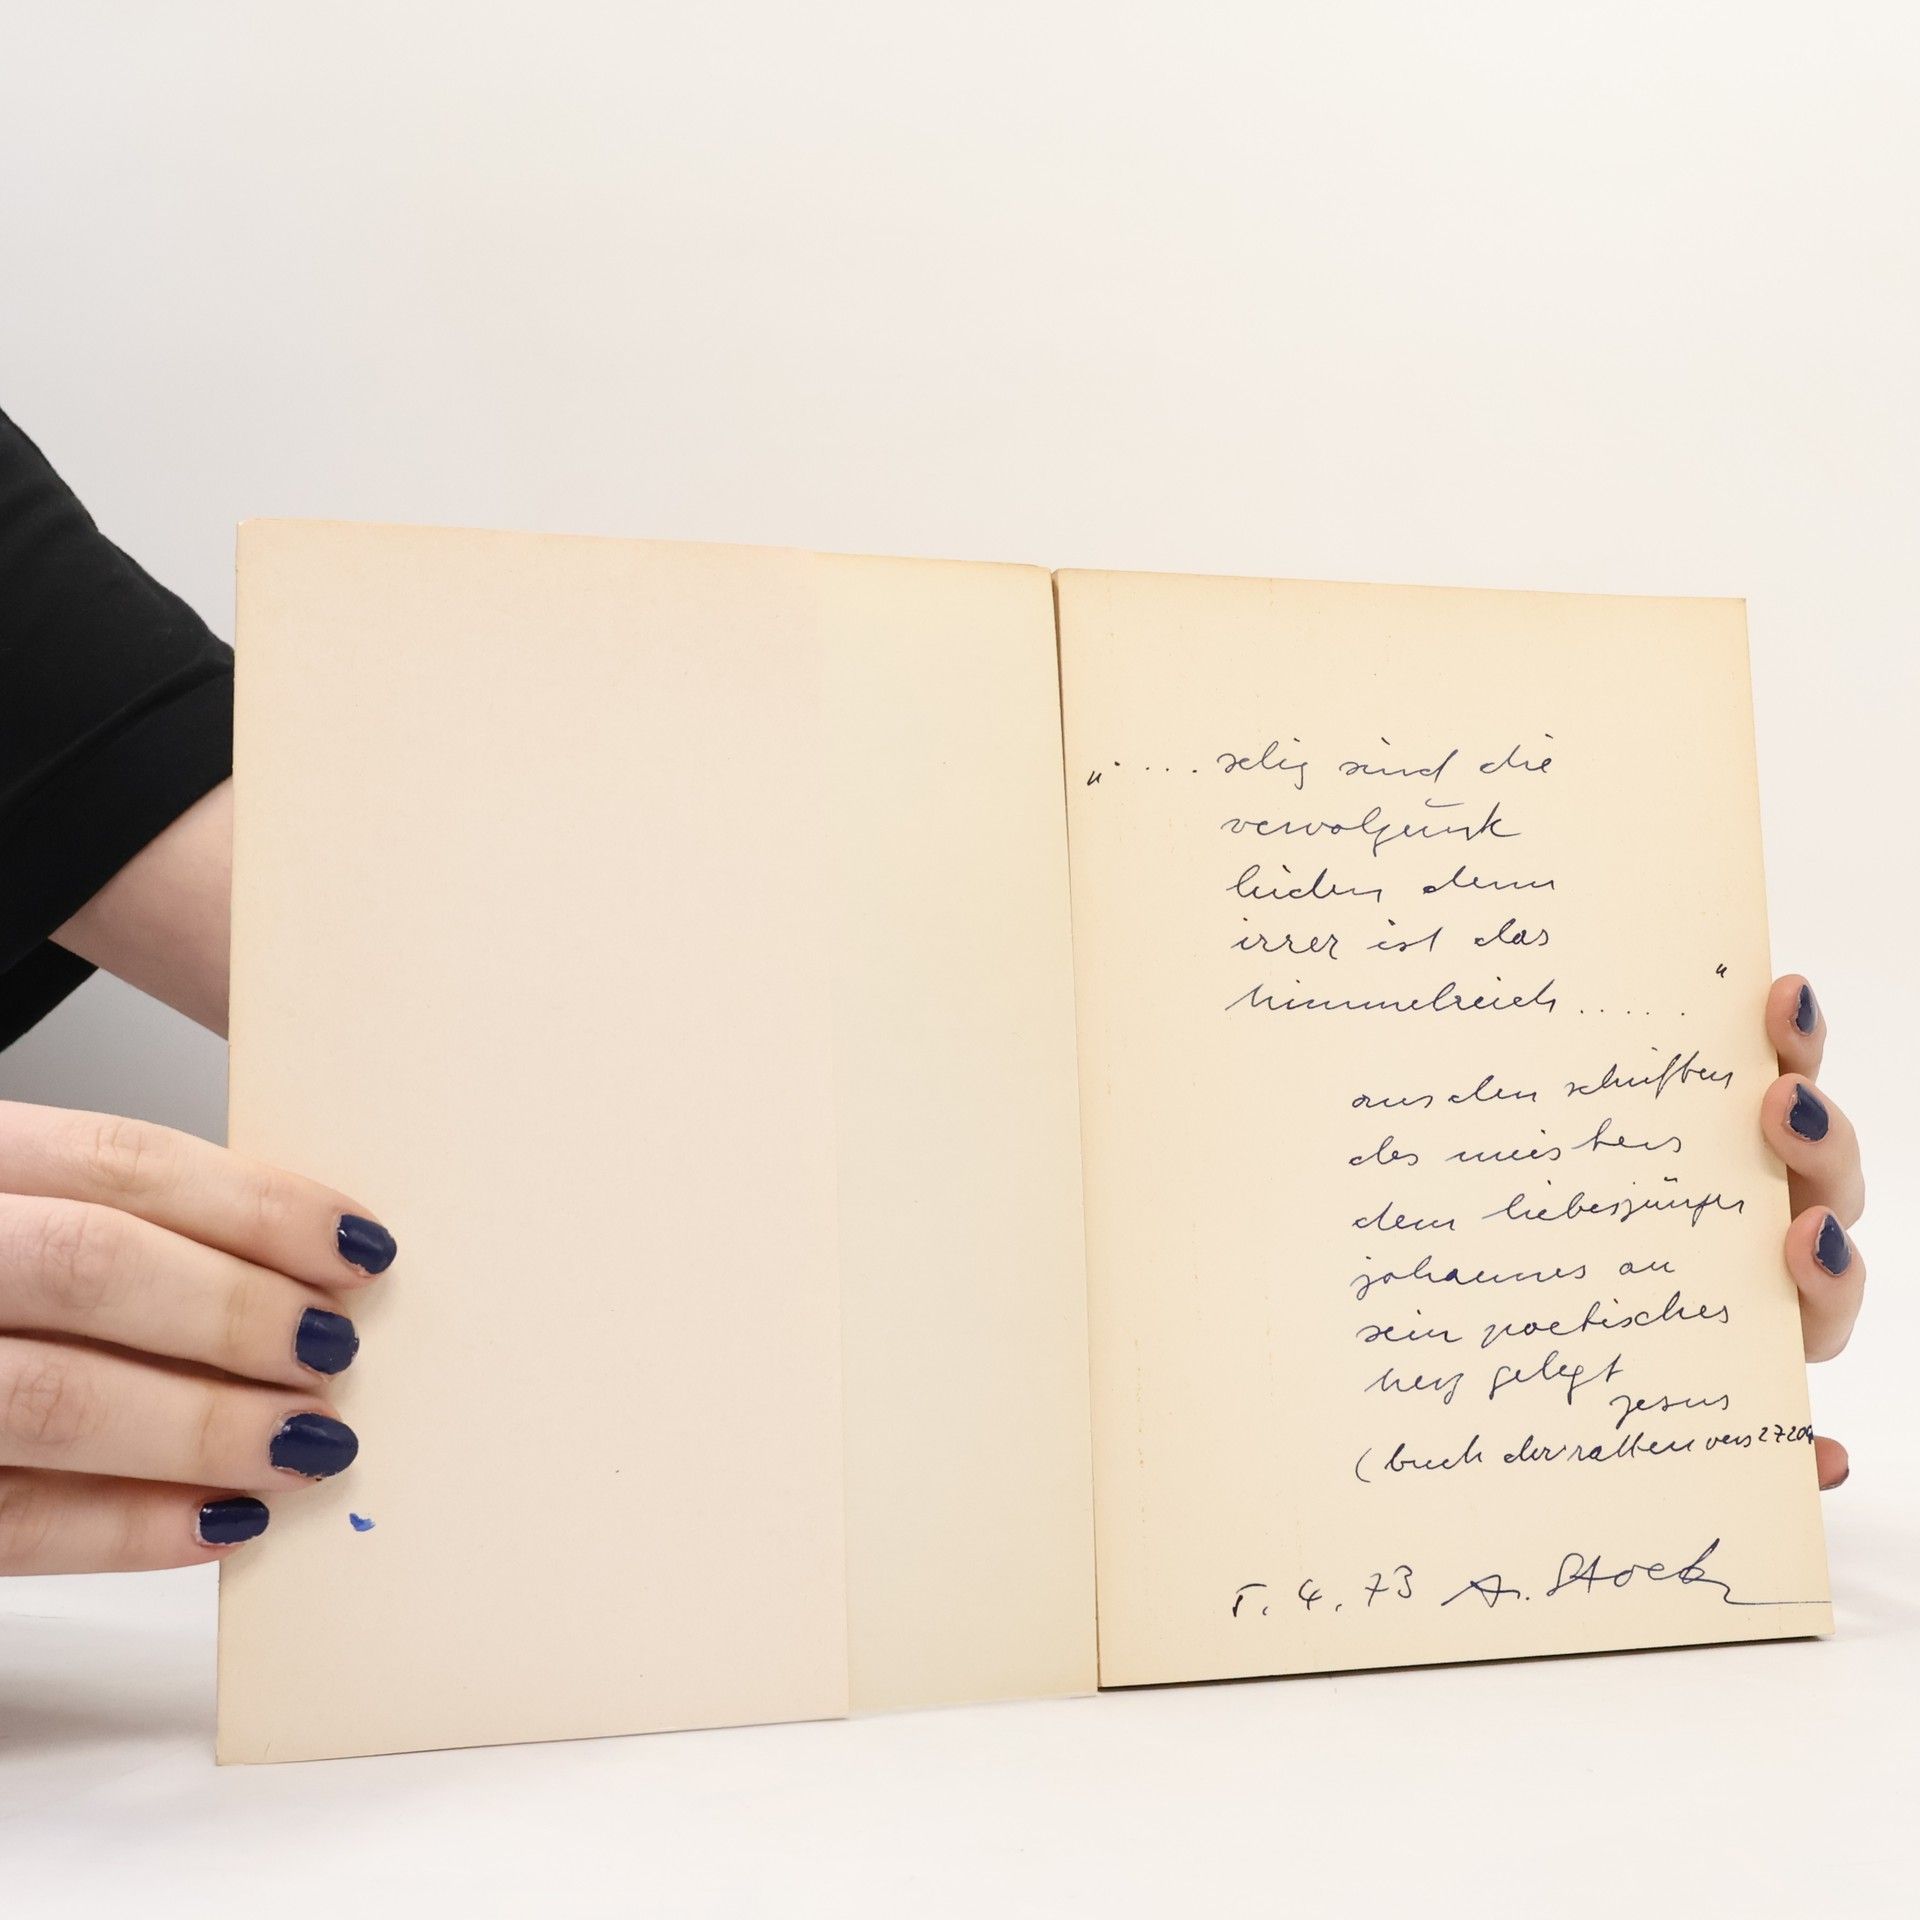 „.... selig sind die
vervolgunk
leiden denn
irrer ist das
himmelreich ....."
aus den schriften
des meisters
dem liebesjünger
johannes an
sein poetisches
herz gelegt
jesus
(buch der ratten vers 27204
5. 4. 73 A. Stock